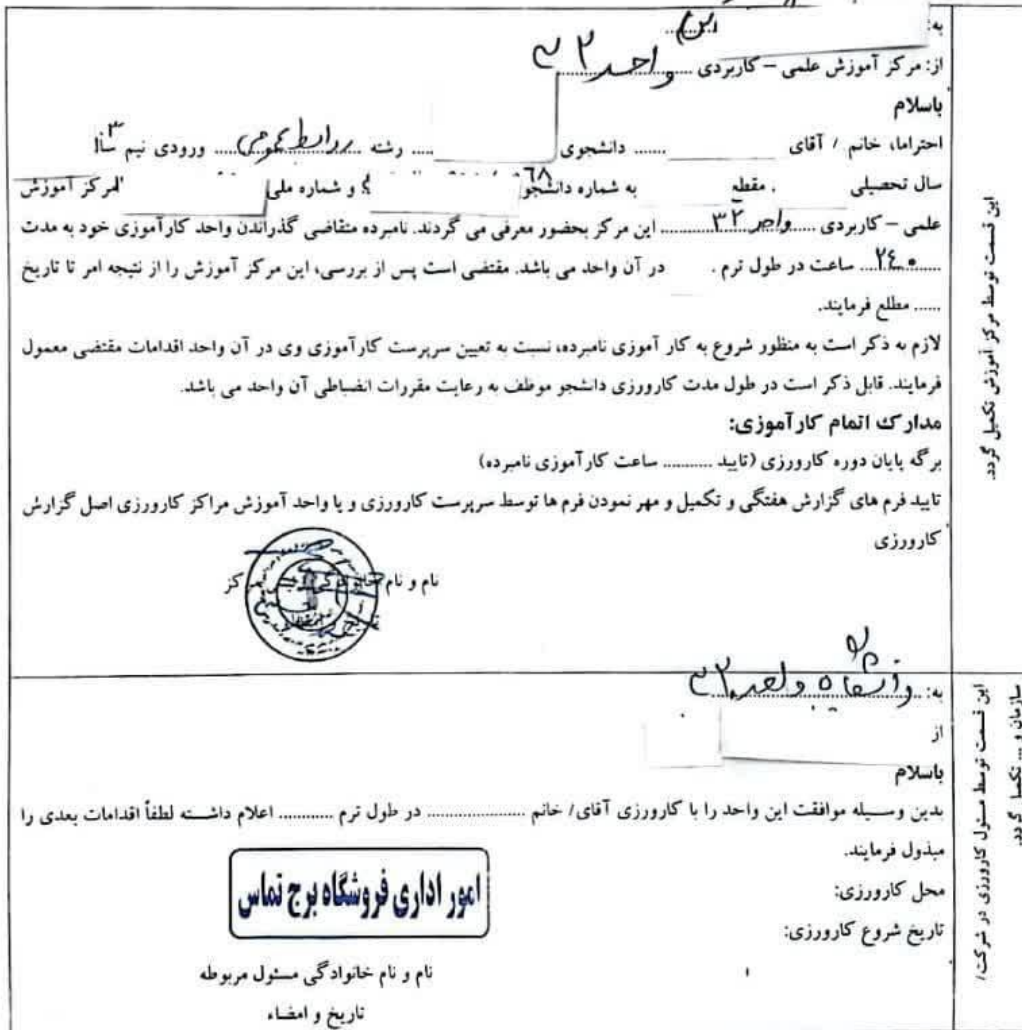 به:
از: مرکز آموزش علمی – کاربردی ........ واحد ۳۲
باسلام
احتراما، خانم / آقای ...... دانشجوی .... رشته روابط عمومی .... ورودی نیم سال
سال تحصیلی . مقطع به شماره دانشجو و شماره ملی مرکز آموزش
علمی – کاربردی ..... واحد ۳۲ ............ این مرکز بحضور معرفی می گردند. نامبرده متقاضی گذراندن واحد کارآموزی خود به مدت
۲۴۰ ساعت در طول ترم . در آن واحد می باشد. مقتضی است پس از بررسی، این مرکز آموزش را از نتیجه امر تا تاریخ
...... مطلع فرمایند.
لازم به ذکر است به منظور شروع به کار آموزی نامبرده، نسبت به تعیین سرپرست کارآموزی وی در آن واحد اقدامات مقتضی معمول
فرمایند. قابل ذکر است در طول مدت کارورزی دانشجو موظف به رعایت مقررات انضباطی آن واحد می باشد.
مدارک اتمام کارآموزی:
برگه پایان دوره کارورزی (تایید .......... ساعت کارآموزی نامبرده)
تایید فرم های گزارش هفتگی و تکمیل و مهر نمودن فرم ها توسط سرپرست کارورزی و یا واحد آموزش مراکز کارورزی اصل گزارش
کارورزی
نام و نام خانوادگی رئیس مرکز
این قسمت توسط مرکز آموزش تکمیل گردد.
به: دانشگاه واحد ۳۲
از
باسلام
بدین وسیله موافقت این واحد را با کارورزی آقای/ خانم .................. در طول ترم ............ اعلام داشته لطفاً اقدامات بعدی را
مبذول فرمایند.
محل کارورزی:
تاریخ شروع کارورزی:
امور اداری فروشگاه برج تماس
نام و نام خانوادگی مسئول مربوطه
تاریخ و امضاء
این قسمت توسط مسئول کارورزی در شرکت/
سازمان و ... تکمیل گردد.